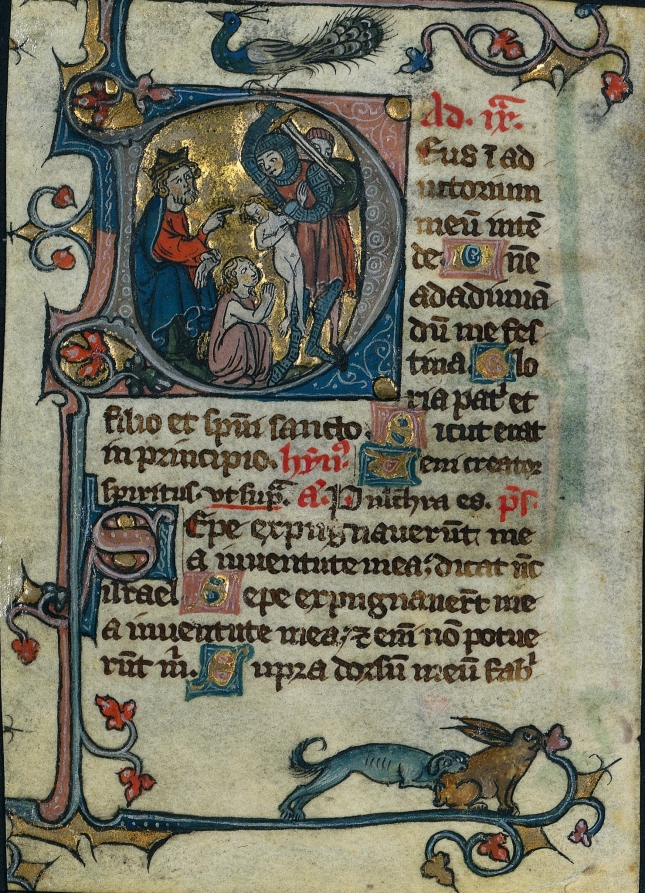 Ad. ix̄.
Eus ī ad
iutorium
meū intē
de. D ne
ad adiuuā
dū me fes
tina. Glo
ria pat' et
filio et spūi sancto. Sicut erat
in principio. hȳn'. Veni creator
spiritus. vt sup̄. a'. Pulchra es. p̄s.
Sepe expugnauerūt me
a iuuentute mea: dicat nc̄
israel. Sepe expugnauer̄t me
a iuuentute mea: ⁊ eni nō potue
rūt m̄. Supra dorsū meū fab'